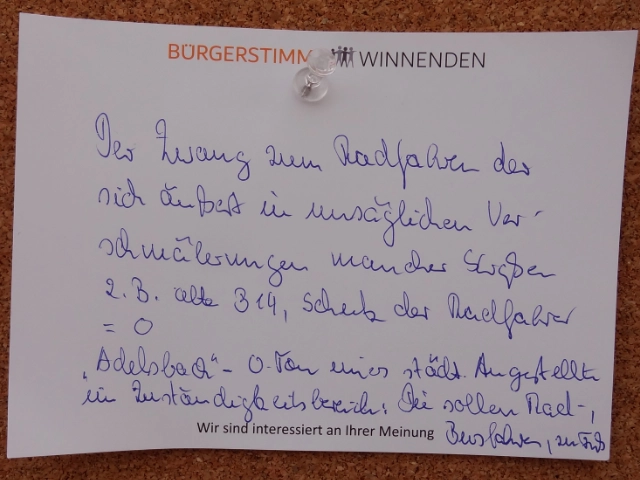 BÜRGERSTIMM WINNENDEN
Der Zwang zum Radfahren der
sich äußert in unsäglichen Ver-
schmälerungen mancher Straßen
z.B. alte B14, der Radfahrer
= 0
"Adelsbach" - O-Ton eines städt. Angestellten
im Zuständigkeitsbereich: Sie sollen Rad-,
Wir sind interessiert an Ihrer Meinung Busfahren, zu Fuß